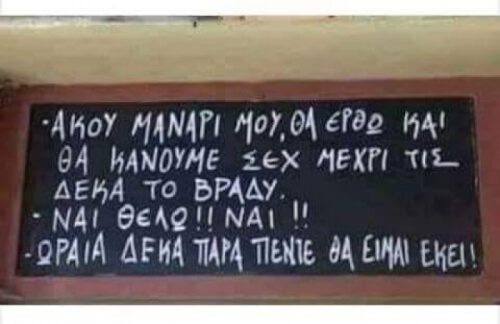 - ΑΚΟΥ ΜΑΝΑΡΙ ΜΟΥ, ΘΑ ΕΡΘΩ ΚΑΙ
ΘΑ ΚΑΝΟΥΜΕ ΣΕΧ ΜΕΧΡΙ ΤΙΣ
ΔΕΚΑ ΤΟ ΒΡΑΔΥ.
- ΝΑΙ ΘΕΛΩ!! ΝΑΙ !!
- ΩΡΑΙΑ ΔΕΚΑ ΠΑΡΑ ΠΕΝΤΕ ΘΑ ΕΙΜΑΙ ΕΚΕΙ!